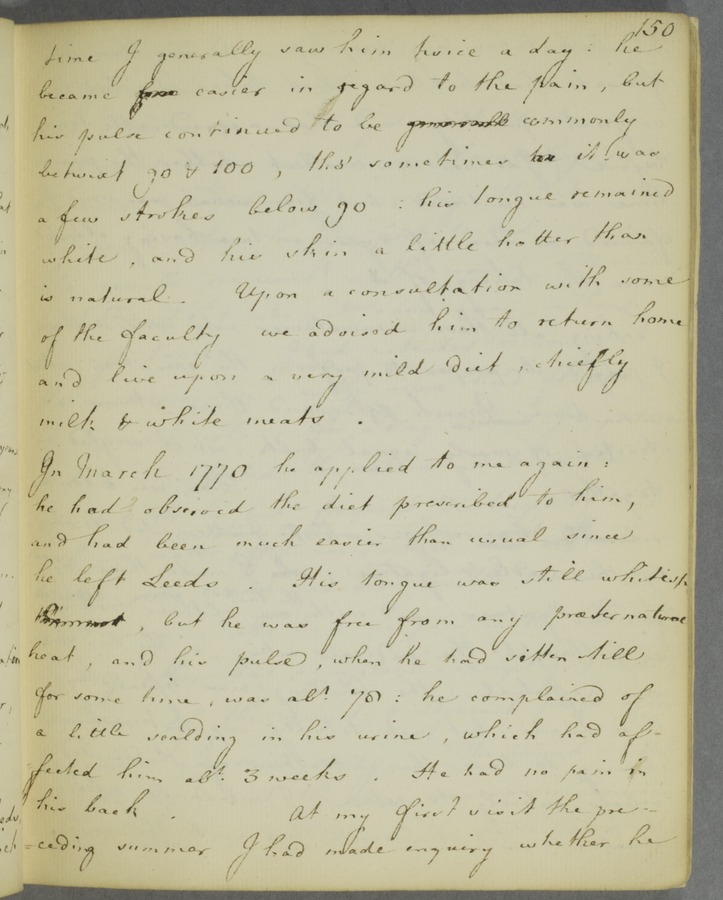 150
time I generally saw him twice a day : he
became easier in regard to the pain, but
his pulse continued to be commonly
betwixt 90 & 100, tho' sometimes it was
a few strokes below 90 : his tongue remained
white, and his skin a little hotter than
is natural. Upon a consultation with some
of the faculty we advised him to return home
and live upon a very mild diet, chiefly
milk & white meats.
In March 1770 he applied to me again :
he had observed the diet prescribed to him,
and had been much easier than usual since
he left Leeds. His tongue was still whitish
, but he was free from any præternatural
heat, and his pulse, when he had sitten still
for some time, was abt. 76 : he complained of
a little scalding in his urine, which had af-
fected him abt. 3 weeks. He had no pain in
his back. At my first visit the pre-
=ceding summer I had made enquiry whether he